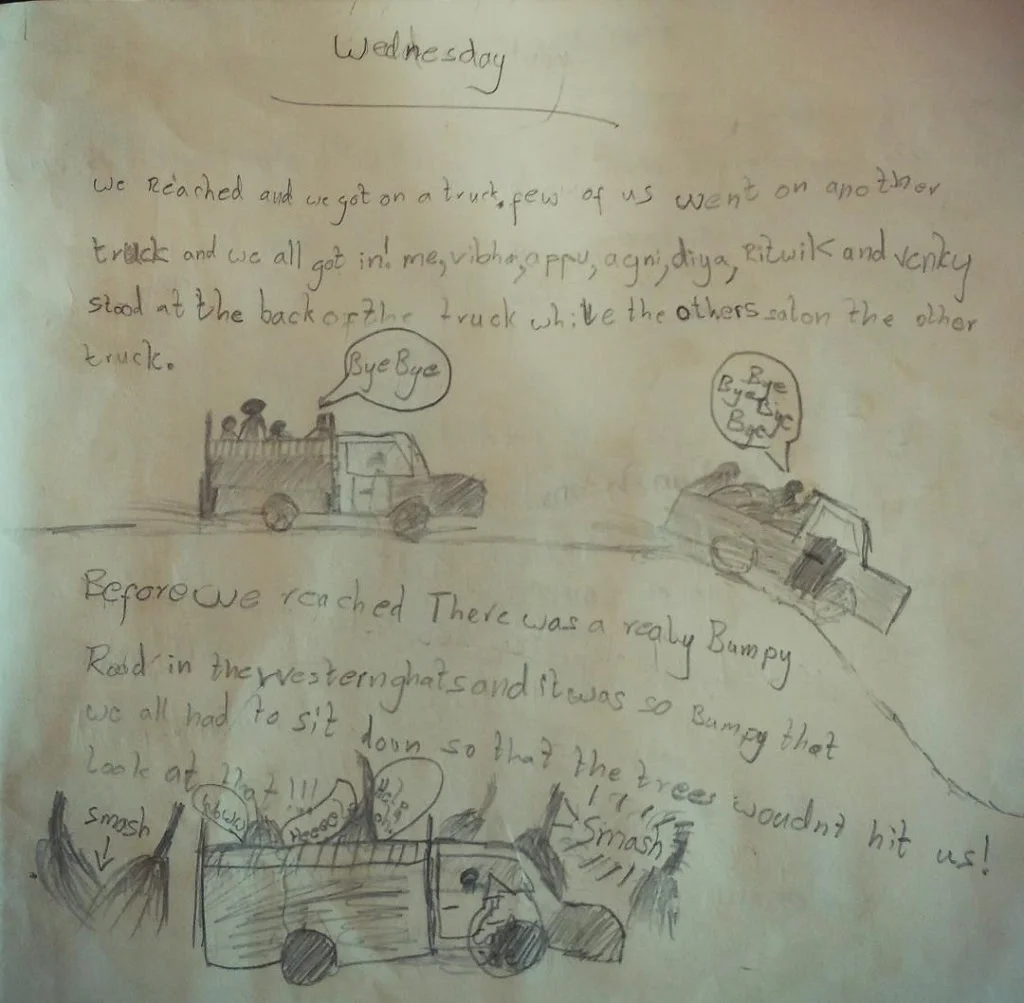 Wednesday
we Reached and we got on a truck. few of us went on another
truck and we all got in! me, vibha, appu, agni, diya, Ritwik and venky
stood at the back of the truck while the others sat on the other
truck.
Bye Bye
Bye
Bye Bye
Bye
Before we reached There was a realy Bumpy
Road in the western ghats and it was so Bumpy that
we all had to sit down so that the trees woudnt hit us!
look at that !!!
smash
Help
Smash